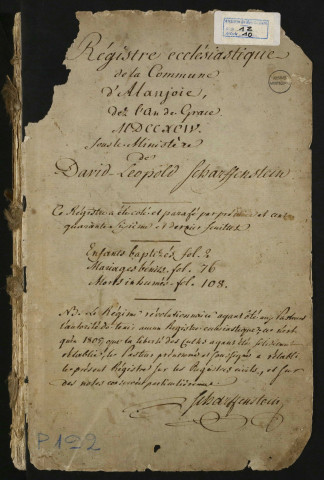 1 Z
10
Régistre ecclésiastique
de la Commune
d'Alanjoie,
dez l'an de Grace
MDCCXCIV.
sous le Ministère
de
David-Léopold Scharffenstein
Ce Régistre a été coté et parafé par premier et cent
quarante sixième et dernier feuillet
Enfants baptisés fol. 2
Mariages bénits fol. 76
Morts inhumés fol. 108.
NB. Le Régime révolutionnaire ayant ôté aux Pasteurs
l'autorité de tenir aucun Registre ecclesiastique, ce n'est
qu'en 1805 que la liberté des Cultes ayant été
rétablie, le Pasteur a rétabli
le présent Régistre sur les Régistres civils, et sur
des notes conservées particulièrement
Scharffenstein
P 192